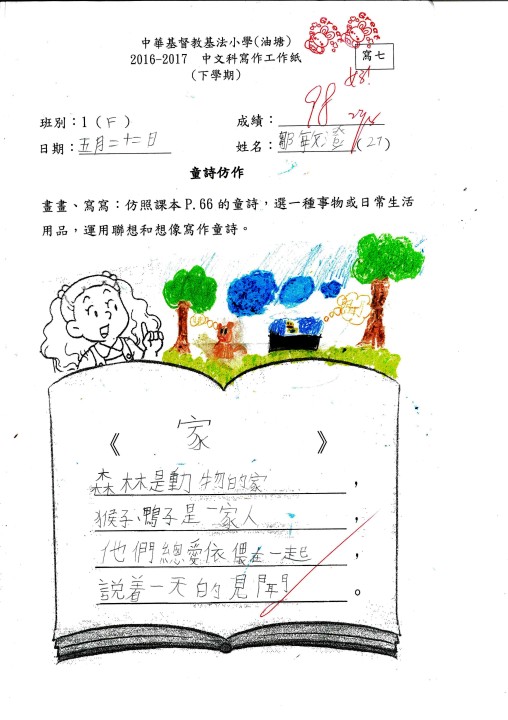 中華基督教基法小學(油塘)
2016-2017 中文科寫作工作紙
(下學期)
寫七
98
班別：1（F） 成績：
日期：五月二十二日 姓名：鄒敏澄(27)
童詩仿作
畫畫、寫寫：仿照課本P.66的童詩，選一種事物或日常生活
用品，運用聯想和想像寫作童詩。
《 家 》
森林是動物的家，
猴子、鴨子是一家人，
他們總愛依偎在一起，
說着一天的見聞。